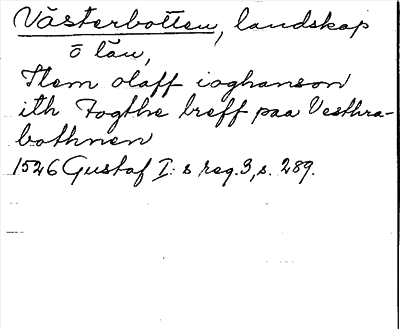 Västerbotten, landskap
o län,
Item olaff ioghanson
ith Fogthe breff paa Vesthra-
bothnen
1526 Gustaf I:s reg. 3, s. 289.